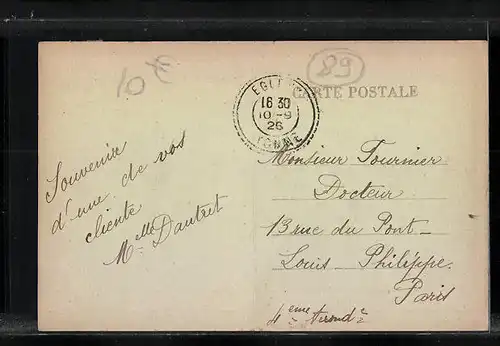 10€
89
CARTE POSTALE
EGL
16 30
10 - 9
26
YONNE
Souvenir
d'une de vos
cliente
Melle Dautret
Monsieur Tournier
Docteur
13 rue du Pont-
Louis Philippe.
Paris
4eme arrondt